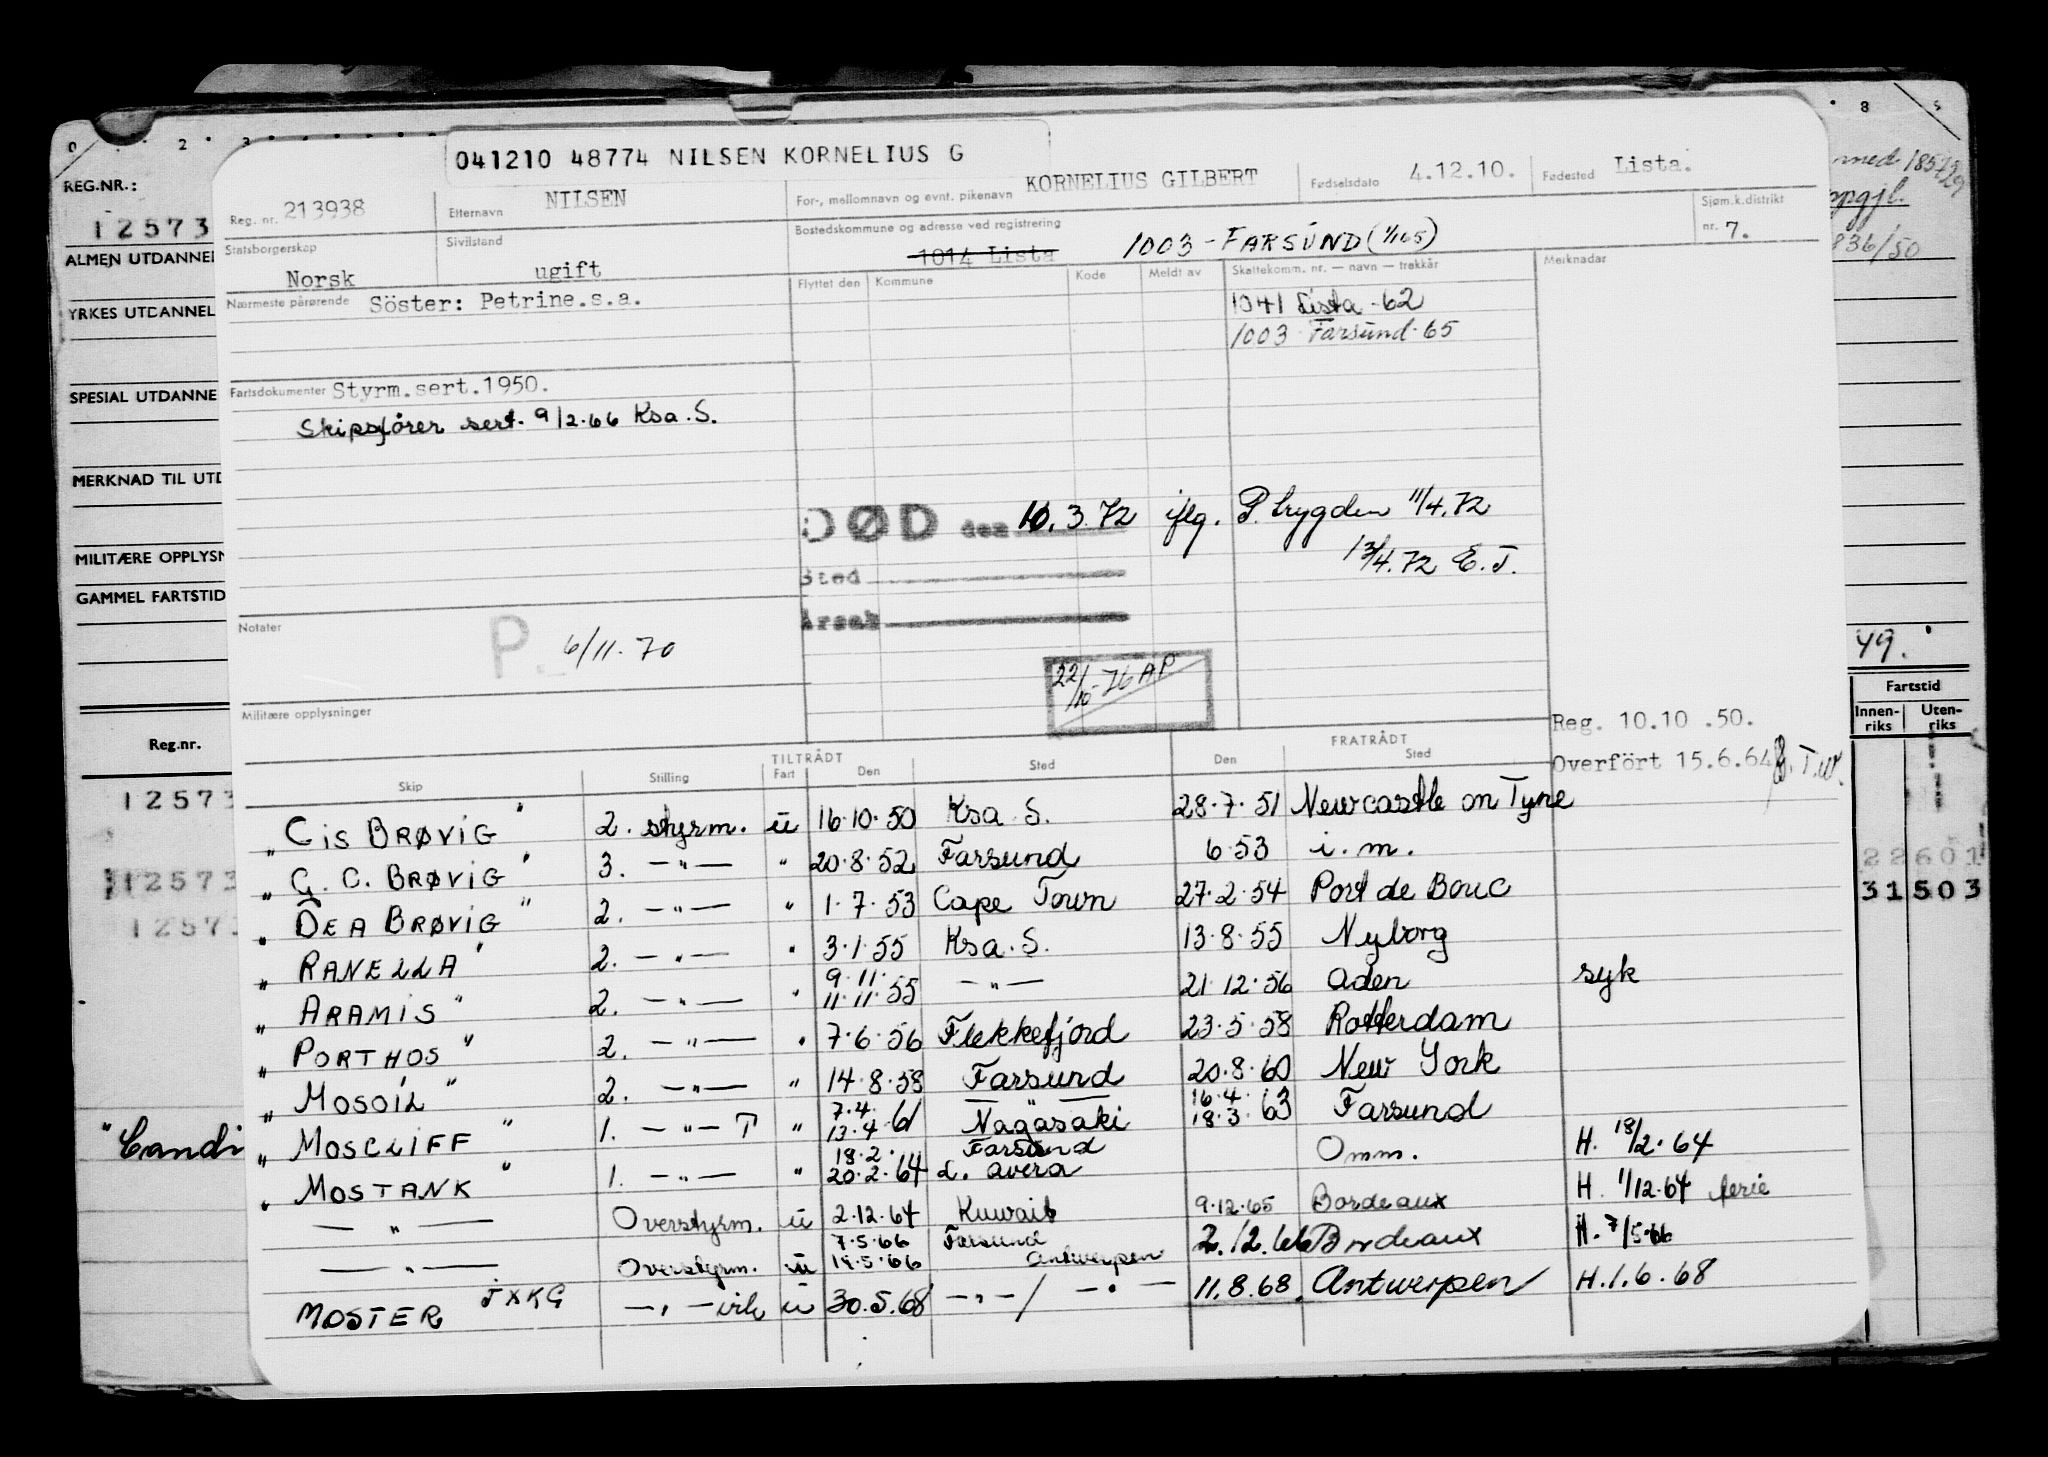 041210 48774 NILSEN KORNELIUS G
Reg. nr. 213938 Etternavn NILSEN For-, mellomnavn og evnt. pikenavn KORNELIUS GILBERT Fødselsdato 4.12.10. Fødested Lista.
Statsborgerskap Norsk Sivilstand ugift Bostedskommune og adresse ved registrering 1014 Lista 1003 - FARSUND (1/165) Sjøm.k.distrikt nr. 7.
Nærmeste pårørende Söster: Petrine.s.a.
Flyttet den Kommune Kode Meldt av Skattekomm. nr. — navn — trekkår Merknader
1041 Lista -62
1003 Farsund-65
Fartsdokumenter Styrm.sert.1950.
Skipsfører sert. 9/2.66 Ksa.S.
DØD den 10.3.72 iflg. P.trygden 11/4.72
13/4.72 E.J.
Sted
Årsak
Notater
P. 6/11.70
22/10-76 AP
Militære opplysninger
Reg. 10.10 .50.
Overfört 15.6.64
TILTRÅDT FRATRÅDT
Skip Stilling Fart Den Sted Den Sted
" CIS BRØVIG " 2. styrm. u 16.10.50 Ksa.S. 28.7.51 Newcastle on Tyne
" G. C. BRØVIG " 3. —"— " 20.8.52 Farsund 6.53 i.m.
" DEA BRØVIG " 2. —"— " 1.7.53 Cape Town 27.2.54 Port de Bouc
" RANELLA " 2. —"— " 3.1.55 Ksa.S. 13.8.55 Nyborg
" ARAMIS " 2. —"— " 9.11. 11.11.55 —"— 21.12.56 Aden syk
" PORTHOS " 2. —"— " 7.6.56 Flekkefjord 23.5.58 Rotterdam
" MOSOIL " 2. —"— " 14.8.58 Farsund 20.8.60 New York
" MOSCLIFF " 1. —"— T " 7.4. 13.4.61 Nagasaki 16.4. 18.3.63 Farsund
" MOSTANK " 1. —"— " 18.2. 20.2.64 Farsund L. avera Omm. H. 18/2.64
—"— Overstyrm. u 2.12.64 Kuwait 9.12.65 Bordeaux H. 1/12.64 ferie
—"— Overstyrm. u 7.5.66 18.5.66 Farsund Antwerpen 2.12.66 Bordeaux H. 7/5.66
MOSTER JXKG —"— virk u 30.5.68 —"—/ —"— 11.8.68. Antwerpen H.1.6.68
REG.NR.:
12573
ALMEN UTDANNEL
YRKES UTDANNEL
SPESIAL UTDANNE
MERKNAD TIL UTD
MILITÆRE OPPLYSN
GAMMEL FARTSTID
Reg.nr.
12573
12573
12573
"Candi
836/50
49.
Fartstid
Innen-riks Uten-riks
22601
31503